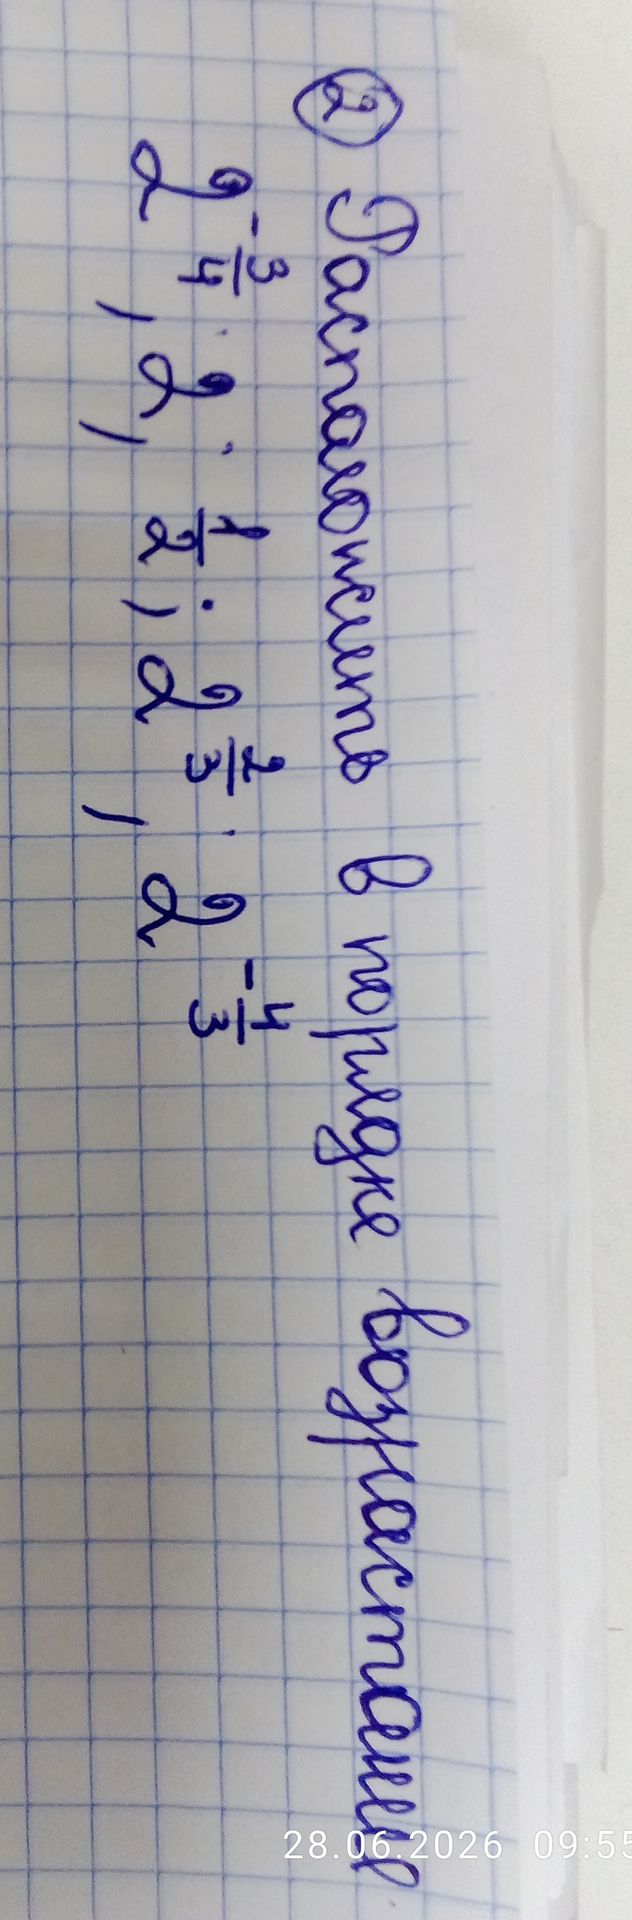 ② Расположить в порядке возрастания
2^{-\frac{3}{4}}; 2; \frac{1}{2}; 2^{\frac{2}{3}}; 2^{-\frac{4}{3}}
28.06.2026 09:55